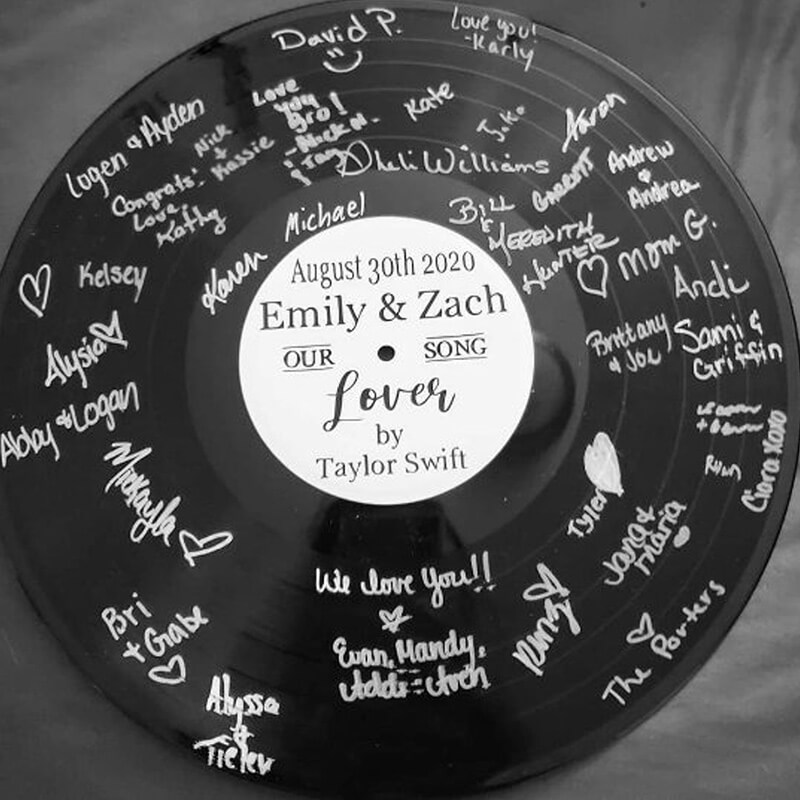 David P.
Love you!
-Karly
Logan & Ayden
Nick
+
Kassie
Love
you
Bro!
-Nick N.
Kate
Aaron
Congrats!
Love,
Kathy
Williams
Garrett
Andrew
&
Andrea
Bill
&
Meredith
Hunter
Mom G.
Andi
Michael
Karen
Kelsey
Alysia
Abby & Logan
Mickayla
Brittany
& Joe
Sami &
Griffin
Ciara xoxo
Tyler
Jana &
Maria
The Porters
Bri
+ Gabe
Alyssa
&
We love you!!
Evan, Mandy,
August 30th 2020
Emily & Zach
OUR SONG
Lover
by
Taylor Swift